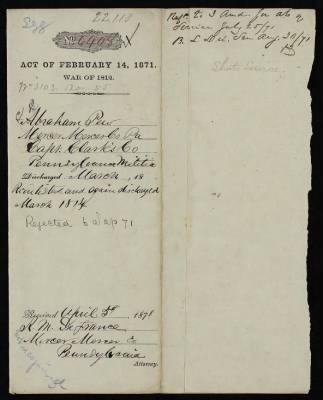 22,110
No. 6405
ACT OF FEBRUARY 14, 1871.
WAR OF 1812.
Abraham Pew
Mercer Mercer Co Pa
Capt. Clark's Co
Pennsylvania Militia
Discharged March, 18
Reinlisted and again discharged
March 1814
Rejected
71
Received April 5th, 1871
R. M. DeFrance
Mercer Mercer Co
Pennsylvania
Attorney.
Rept. 2. & 3 Aud. for
Service July 25/71
Aug. 30/71
Short Service